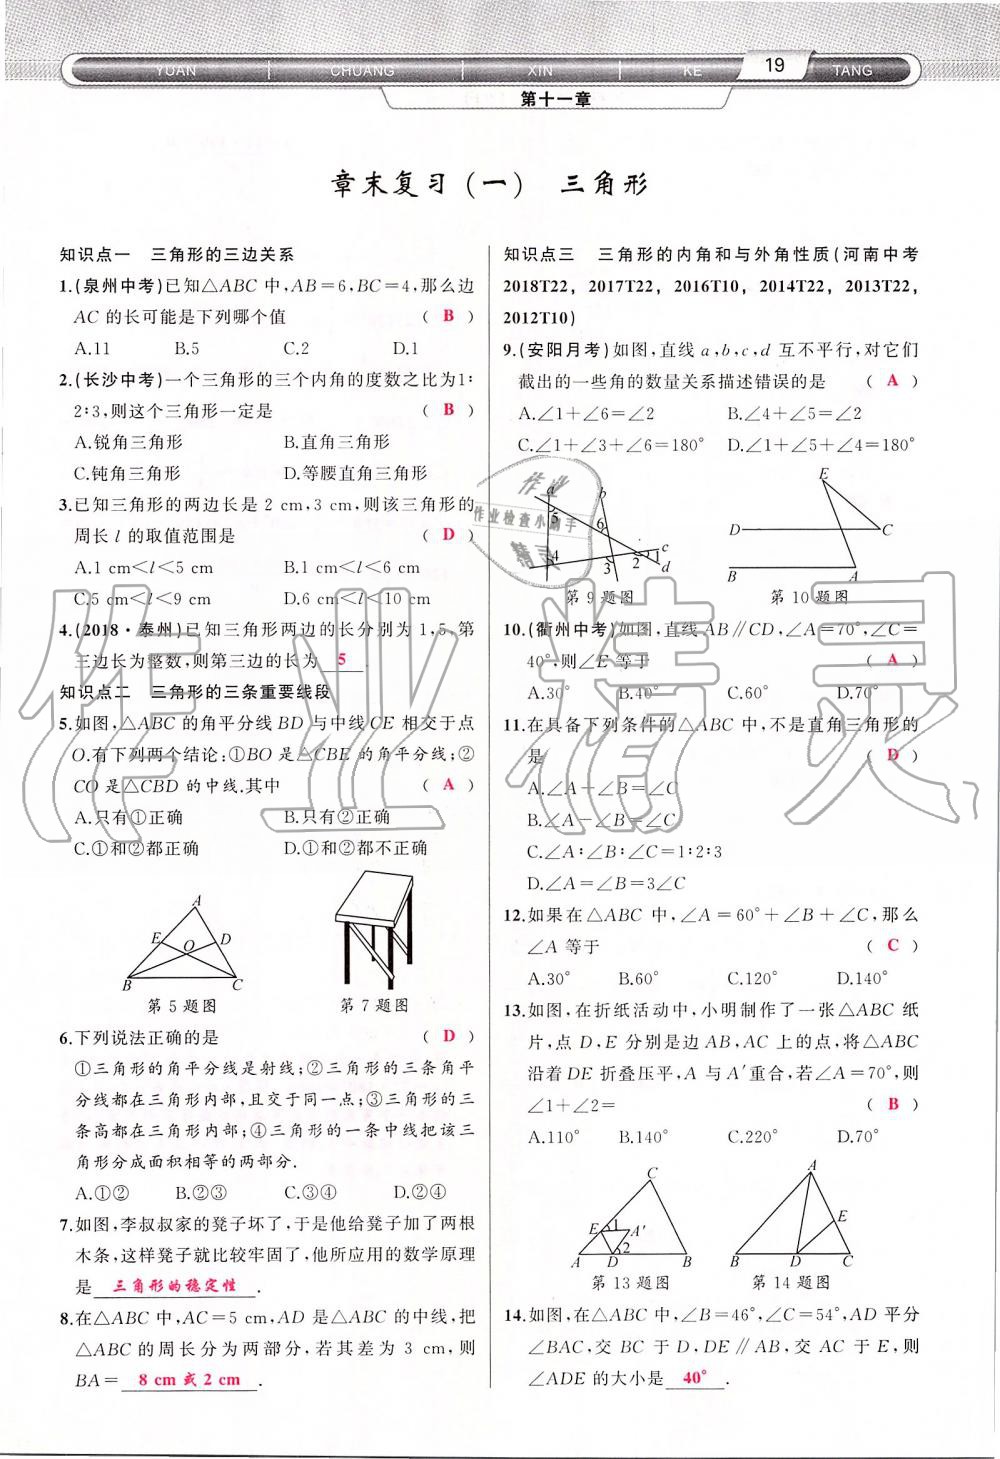 YUAN CHUANG XIN KE 19 TANG
第十一章
章末复习(一) 三角形
知识点一 三角形的三边关系
1.(泉州中考)已知△ABC 中,AB=6,BC=4,那么边
AC 的长可能是下列哪个值 ( B )
A.11 B.5 C.2 D.1
2.(长沙中考)一个三角形的三个内角的度数之比为1∶
2∶3,则这个三角形一定是 ( B )
A.锐角三角形 B.直角三角形
C.钝角三角形 D.等腰直角三角形
3.已知三角形的两边长是 2 cm,3 cm,则该三角形的
周长 l 的取值范围是 ( D )
A.1 cm<l<5 cm B.1 cm<l<6 cm
C.5 cm<l<9 cm D.6 cm<l<10 cm
4.(2018·泰州)已知三角形两边的长分别为 1,5,第
三边长为整数,则第三边的长为 5 .
知识点二 三角形的三条重要线段
5.如图,△ABC 的角平分线 BD 与中线 CE 相交于点
O.有下列两个结论:①BO 是△CBE 的角平分线;②
CO 是△CBD 的中线.其中 ( A )
A.只有①正确 B.只有②正确
C.①和②都正确 D.①和②都不正确
A
E O D
B C
第 5 题图 第 7 题图
6.下列说法正确的是 ( D )
①三角形的角平分线是射线;②三角形的三条角平
分线都在三角形内部,且交于同一点;③三角形的三
条高都在三角形内部;④三角形的一条中线把该三
角形分成面积相等的两部分.
A.①② B.②③ C.③④ D.②④
7.如图,李叔叔家的凳子坏了,于是他给凳子加了两根
木条,这样凳子就比较牢固了,他所应用的数学原理
是 三角形的稳定性 .
8.在△ABC 中,AC=5 cm,AD 是△ABC 的中线,把
△ABC 的周长分为两部分,若其差为 3 cm,则
BA= 8 cm 或 2 cm .
知识点三 三角形的内角和与外角性质(河南中考
2018T22，2017T22，2016T10，2014T22，2013T22，
2012T10)
9.(安阳月考)如图,直线 a,b,c,d 互不平行,对它们
截出的一些角的数量关系描述错误的是 ( A )
A.∠1+∠6=∠2 B.∠4+∠5=∠2
C.∠1+∠3+∠6=180° D.∠1+∠5+∠4=180°
a b
5 6
4 3 2 1 c
d
E
D C
B A
第 9 题图 第 10 题图
10.(衢州中考)如图,直线 AB∥CD,∠A=70°,∠C=
40°,则∠E 等于 ( A )
A.30° B.40° C.60° D.70°
11.在具备下列条件的△ABC 中,不是直角三角形的
是 ( D )
A.∠A+∠B=∠C
B.∠A-∠B=∠C
C.∠A∶∠B∶∠C=1∶2∶3
D.∠A=∠B=3∠C
12.如果在△ABC 中,∠A=60°+∠B+∠C,那么
∠A 等于 ( C )
A.30° B.60° C.120° D.140°
13.如图,在折纸活动中,小明制作了一张△ABC 纸
片,点 D,E 分别是边 AB,AC 上的点,将△ABC
沿着 DE 折叠压平,A 与 A′重合,若∠A=70°,则
∠1+∠2= ( B )
A.110° B.140° C.220° D.70°
C
E 1 A′
2
A D B
A
E
B D C
第 13 题图 第 14 题图
14.如图,在△ABC 中,∠B=46°,∠C=54°,AD 平分
∠BAC,交 BC 于 D,DE∥AB,交 AC 于 E,则
∠ADE 的大小是 40° .
作业
作业检查小助手
精灵
作业精灵